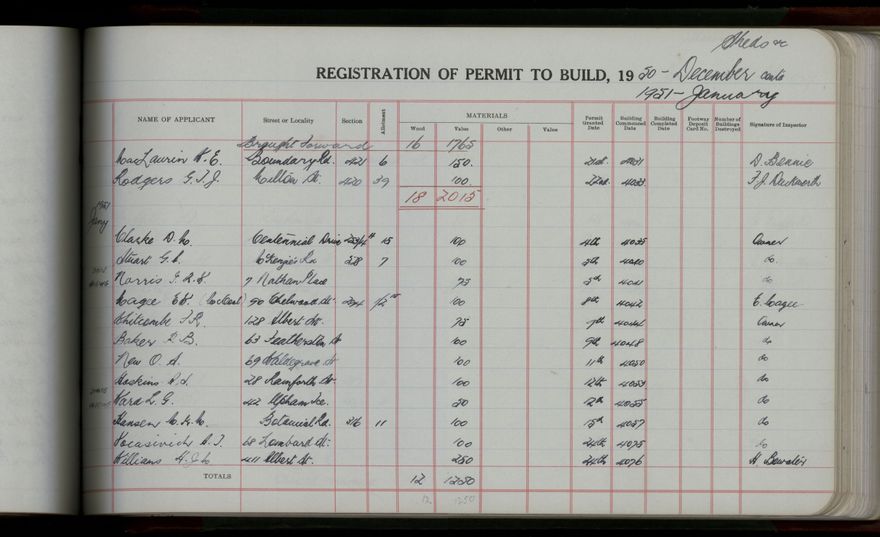 Sheds etc
REGISTRATION OF PERMIT TO BUILD, 1950 - December contd
1951 - January
NAME OF APPLICANT Street or Locality Section Allotment MATERIALS Permit Granted Date Building Commenced Date Building Completed Date Footway Deposit Card No. Number of Buildings Destroyed Signature of Inspector
Wood Value Other Value
Brought forward 16 1765
MacLaurin Boundary Rd. 421 6 150. D. Bennie
Rodgers G.I.J. Milton St. 420 39 100. 22nd 4033 F.J. Duckworth
18 2015
1951
Jany
Clarke D. Centennial Drive 15 100 4th 4035 Owner
Stuart G. McKenzie's Rd 328 7 100 5th 4040 do
Norris 7 Nathan Place 75 5th 4041 do
Magee 90 Chelwood St 100 8th 4042 E. Magee
Whitcombe 128 Albert St. 75 Owner
Baker R.B. 63 Featherston St 100 9th 4048 do
New O. A. 69 Waldegrave St 100 11th 4050 do
Hoskins 28 Rainforth St. 100 12th 4053 do
Ward L.G. 42 Upham Tce. 50 12th 4055 do
Hansen Botanical Rd. 316 11 100 15th 4057 do
68 Lombard St. 100 24th 4075 do
Williams 411 Albert St. 250 24th 4076
TOTALS 12 1250
12 1250